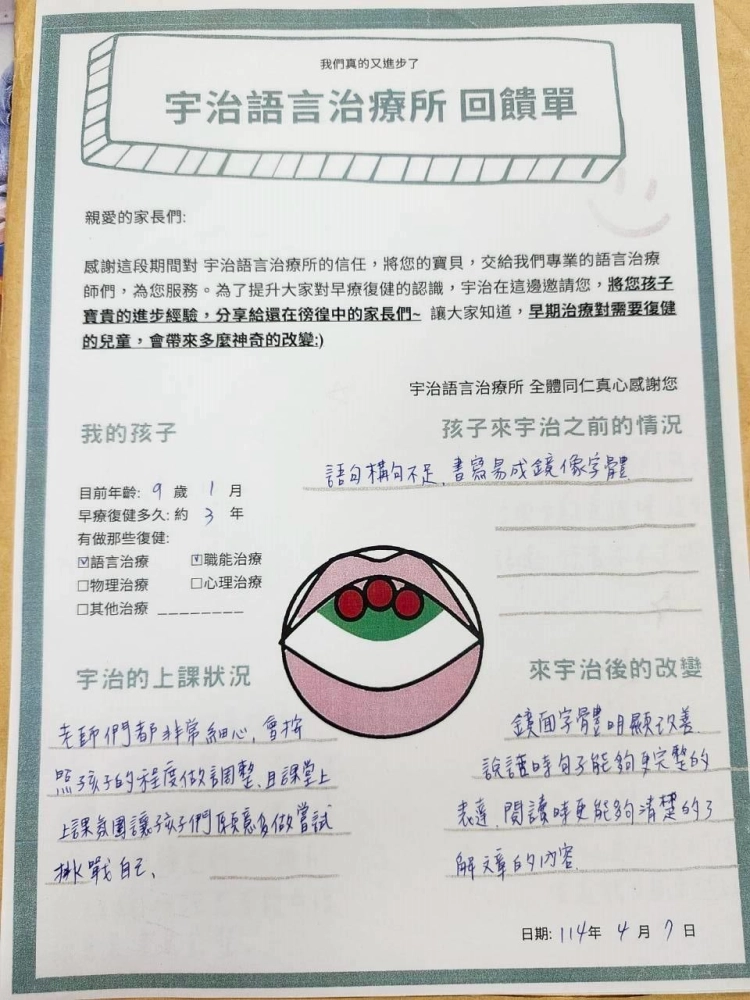 我們真的又進步了
宇治語言治療所 回饋單
親愛的家長們:
感謝這段期間對 宇治語言治療所的信任，將您的寶貝，交給我們專業的語言治療
師們，為您服務。為了提升大家對早療復健的認識，宇治在這邊邀請您，將您孩子
寶貴的進步經驗，分享給還在徬徨中的家長們~ 讓大家知道，早期治療對需要復健
的兒童，會帶來多麼神奇的改變:)
宇治語言治療所 全體同仁真心感謝您
我的孩子
目前年齡: 9 歲 1 月
早療復健多久: 約 3 年
有做那些復健:
☑語言治療 ☑職能治療
☐物理治療 ☐心理治療
☐其他治療 ________
孩子來宇治之前的情況
語句構句不足、書寫易成鏡像字體
宇治的上課狀況
老師們都非常細心，會按
照孩子的程度做調整，且課堂上
上課氛圍讓孩子們願意多做嘗試
挑戰自己、
來宇治後的改變
鏡面字體明顯改善、
說話時句子能夠更完整的
表達，閱讀時更能夠清楚的了
解文章的內容、
日期: 114年 4 月 7 日